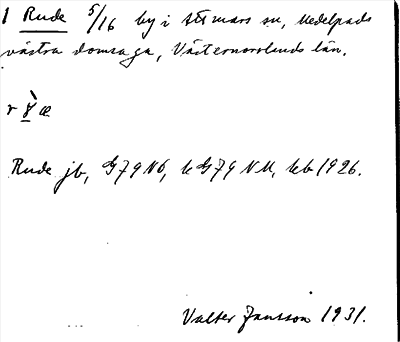 1 Rude 5/16 by i Stömars sn, Medelpads
västra domsaga, Västernorrlands län.
Rude jb, G79 NO, k G79 NV, kb 1926.
Valter Jansson 1931.